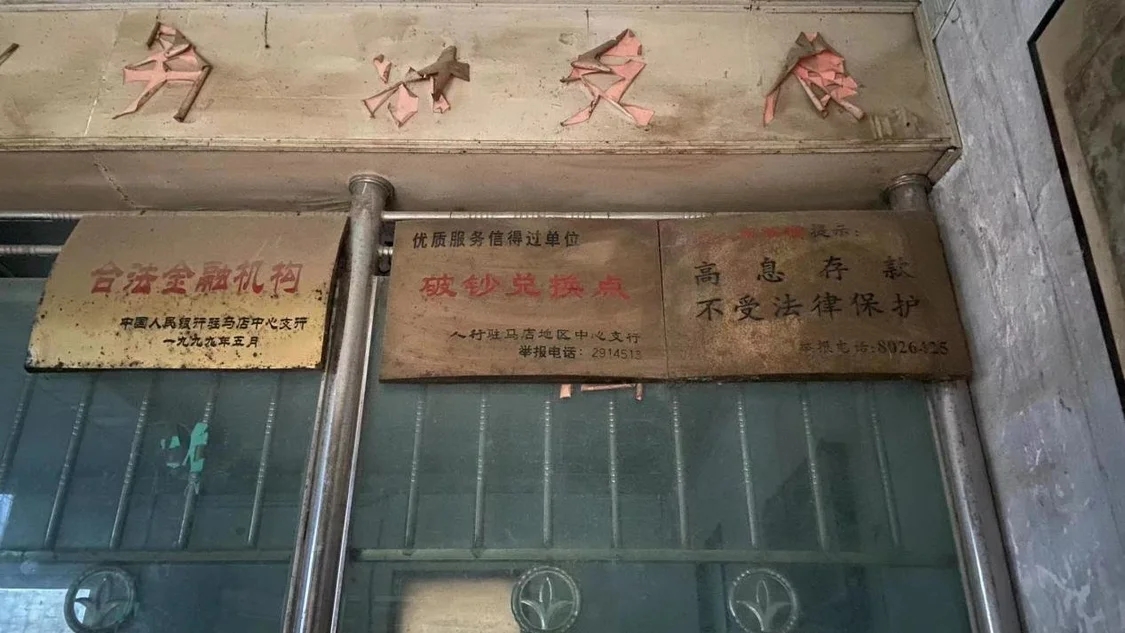 合法金融机构
中国人民银行驻马店中心支行
一九九九年五月
优质服务信得过单位
破钞兑换点
人行驻马店地区中心支行
举报电话：2914513
提示：
高息存款
不受法律保护
举报电话: